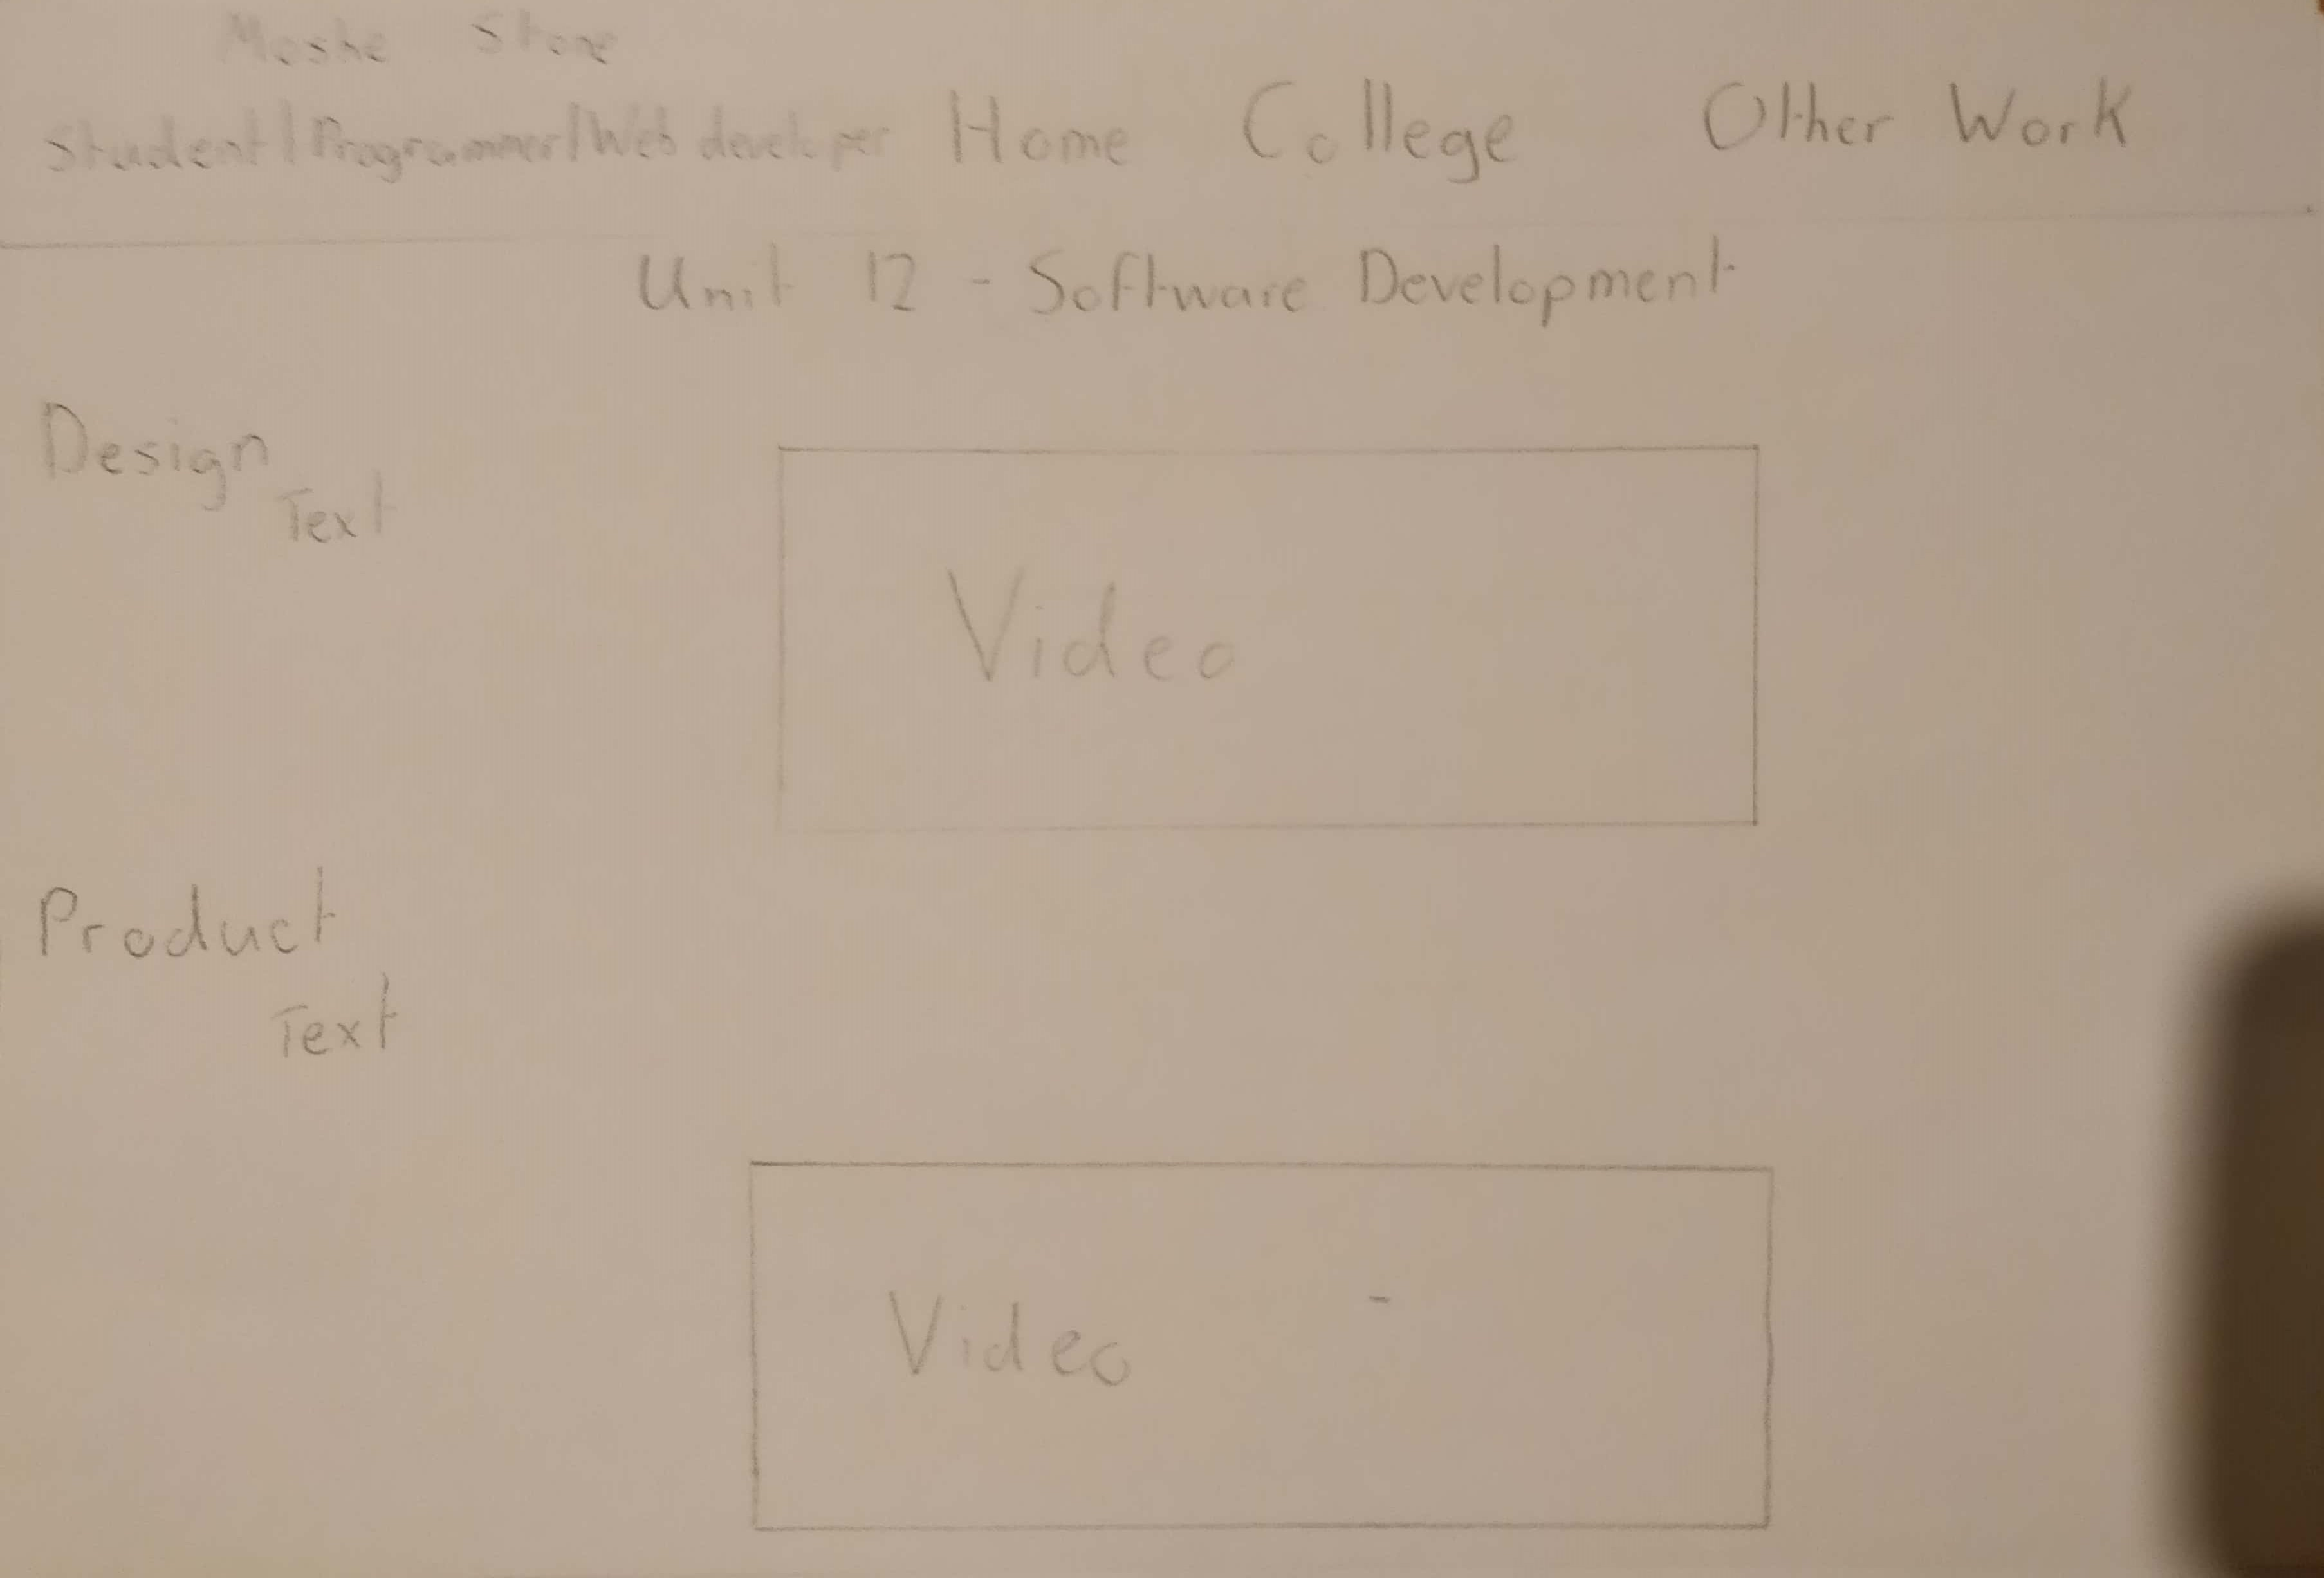 Moshe Stone
Student/Programmer/Web developer Home College Other Work
Unit 12 - Software Development
Design
Text
Video
Product
Text
Video